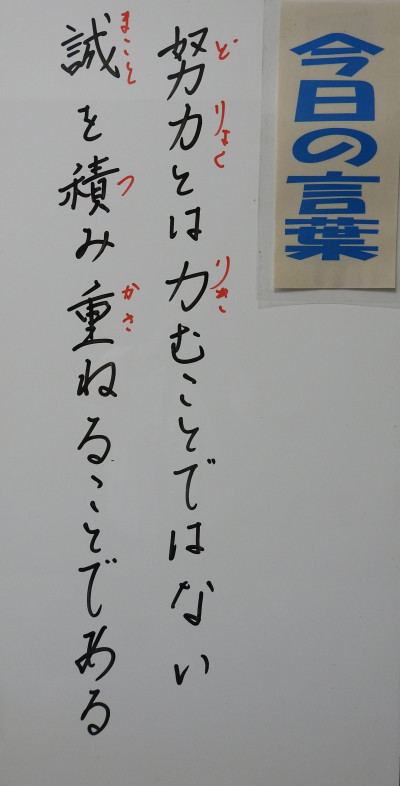 今日の言葉
努力とは力むことではない
どりょく
りき
誠を積み重ねることである
まこと
つ
かさ